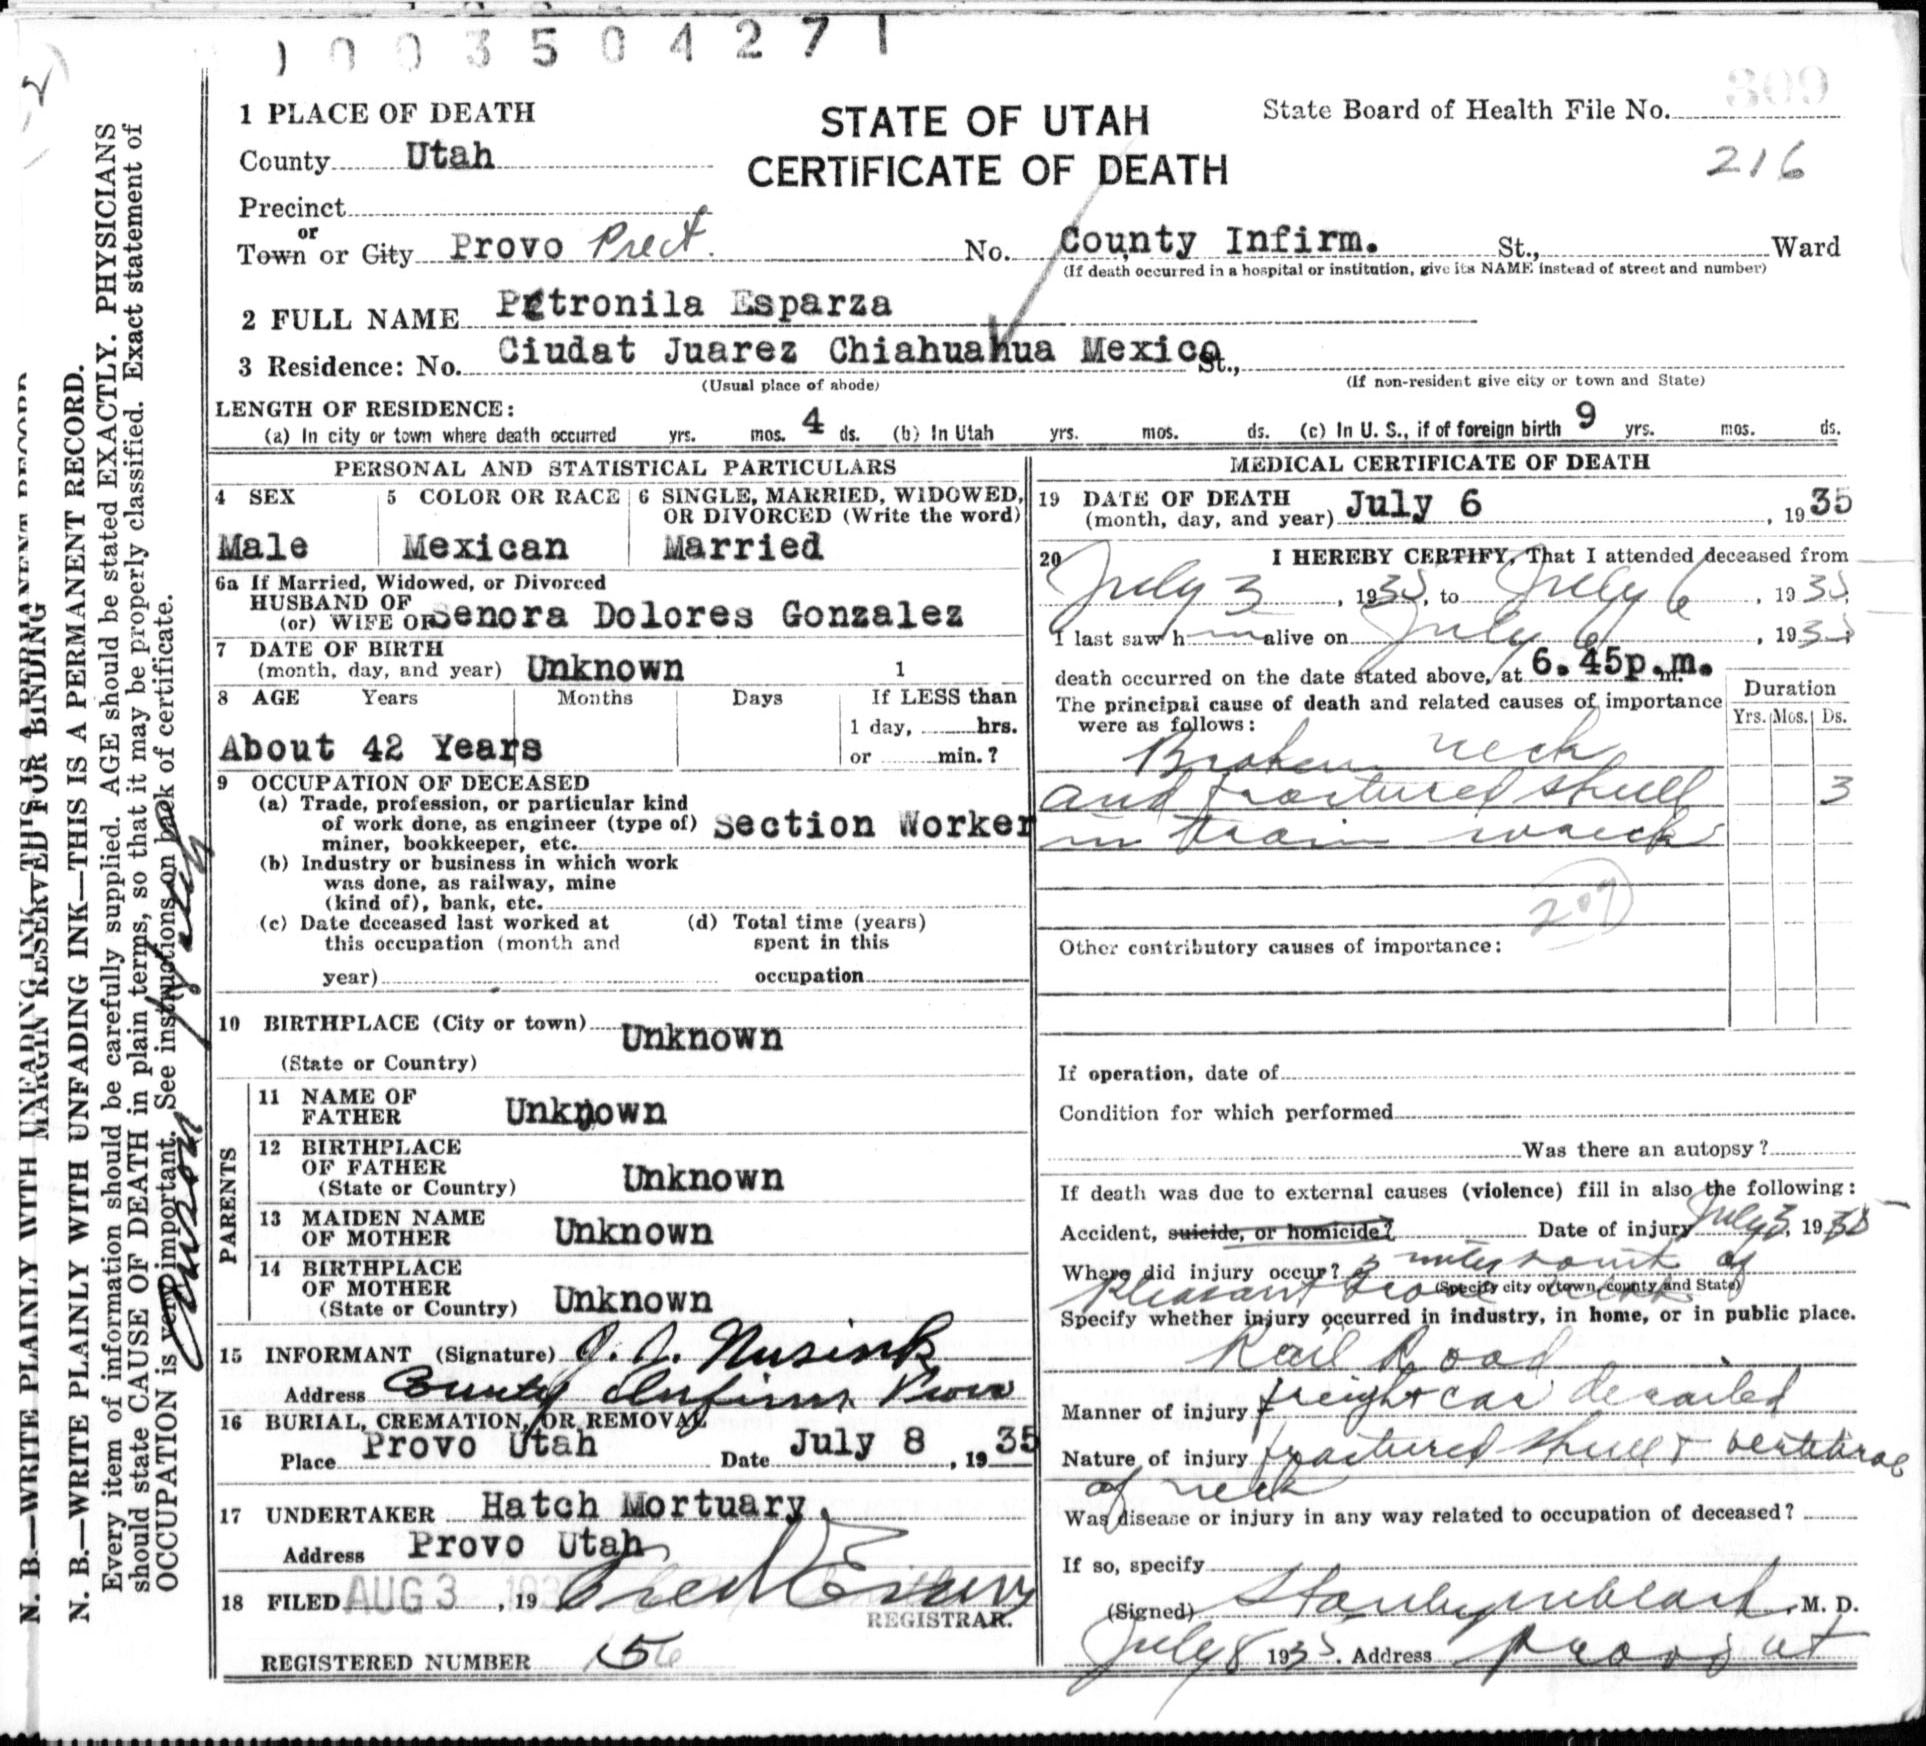 1 0 0 3 5 0 4 2 7 1
309
1 PLACE OF DEATH
STATE OF UTAH
CERTIFICATE OF DEATH
State Board of Health File No.
216
County Utah
Precinct
or
Town or City Provo Prect. No. County Infirm. St., Ward
(If death occurred in a hospital or institution, give its NAME instead of street and number)
2 FULL NAME Petronila Esparza
3 Residence: No. Ciudat Juarez Chiahuahua Mexico St.,
(Usual place of abode) (If non-resident give city or town and State)
LENGTH OF RESIDENCE:
(a) In city or town where death occurred yrs. mos. 4 ds. (b) In Utah yrs. mos. ds. (c) In U. S., if of foreign birth 9 yrs. mos. ds.
PERSONAL AND STATISTICAL PARTICULARS
4 SEX
Male
5 COLOR OR RACE
Mexican
6 SINGLE, MARRIED, WIDOWED,
OR DIVORCED (Write the word)
Married
6a If Married, Widowed, or Divorced
HUSBAND OF
(or) WIFE OF Senora Dolores Gonzalez
7 DATE OF BIRTH
(month, day, and year) Unknown 1
8 AGE Years Months Days If LESS than
1 day, hrs.
or min.?
About 42 Years
9 OCCUPATION OF DECEASED
(a) Trade, profession, or particular kind
of work done, as engineer (type of)
miner, bookkeeper, etc. Section Worker
(b) Industry or business in which work
was done, as railway, mine
(kind of), bank, etc.
(c) Date deceased last worked at
this occupation (month and
year)
(d) Total time (years)
spent in this
occupation
10 BIRTHPLACE (City or town) Unknown
(State or Country)
PARENTS
11 NAME OF
FATHER Unknown
12 BIRTHPLACE
OF FATHER
(State or Country) Unknown
13 MAIDEN NAME
OF MOTHER Unknown
14 BIRTHPLACE
OF MOTHER
(State or Country) Unknown
15 INFORMANT (Signature)
Address County Infirm. Provo
16 BURIAL, CREMATION, OR REMOVAL
Place Provo Utah Date July 8, 1935
17 UNDERTAKER Hatch Mortuary.
Address Provo Utah
18 FILED AUG 3 1935, 19
REGISTRAR.
REGISTERED NUMBER 156
MEDICAL CERTIFICATE OF DEATH
19 DATE OF DEATH
(month, day, and year) July 6, 1935
20 I HEREBY CERTIFY, That I attended deceased from
July 3, 1935, to July 6, 1935
I last saw h im alive on July 6, 1935
death occurred on the date stated above, at 6.45p.m. m.
The principal cause of death and related causes of importance
were as follows:
Duration
Yrs. Mos. Ds.
Broken neck
and fractured skull 3
in train wreck
209
Other contributory causes of importance:
If operation, date of
Condition for which performed
Was there an autopsy?
If death was due to external causes (violence) fill in also the following:
Accident, suicide, or homicide? Date of injury July 3, 1935
Where did injury occur? 3 miles south of
(Specify city or town, county and State)
Pleasant Grove Utah
Specify whether injury occurred in industry, in home, or in public place.
Rail Road
Manner of injury freight car derailed
Nature of injury fractured skull & vertebrae
of neck
Was disease or injury in any way related to occupation of deceased?
If so, specify
(Signed) Stanley M. Clark, M. D.
July 8 1935. Address Provo Ut
MARGIN RESERVED FOR BINDING
N. B.—WRITE PLAINLY WITH UNFADING INK—THIS IS A PERMANENT RECORD
N. B.—WRITE PLAINLY WITH UNFADING INK—THIS IS A PERMANENT RECORD.
Every item of information should be carefully supplied. AGE should be stated EXACTLY. PHYSICIANS
should state CAUSE OF DEATH in plain terms, so that it may be properly classified. Exact statement of
OCCUPATION is very important. See instructions on back of certificate.